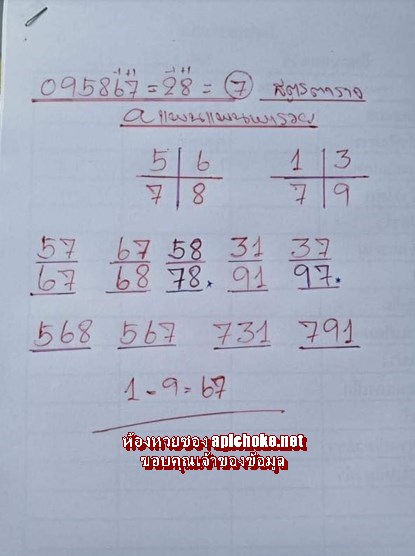 095867 = 28 = 7 สูตรตาราง
a แพนแพนพารวย
5 6 1 3
7 8 7 9
57 67 58 31 37
67 68 78. 91 97.
568 567 731 791
1 - 9 = 67
ห้องหวยซอง apichoke.net
ขอบคุณเจ้าของข้อมูล